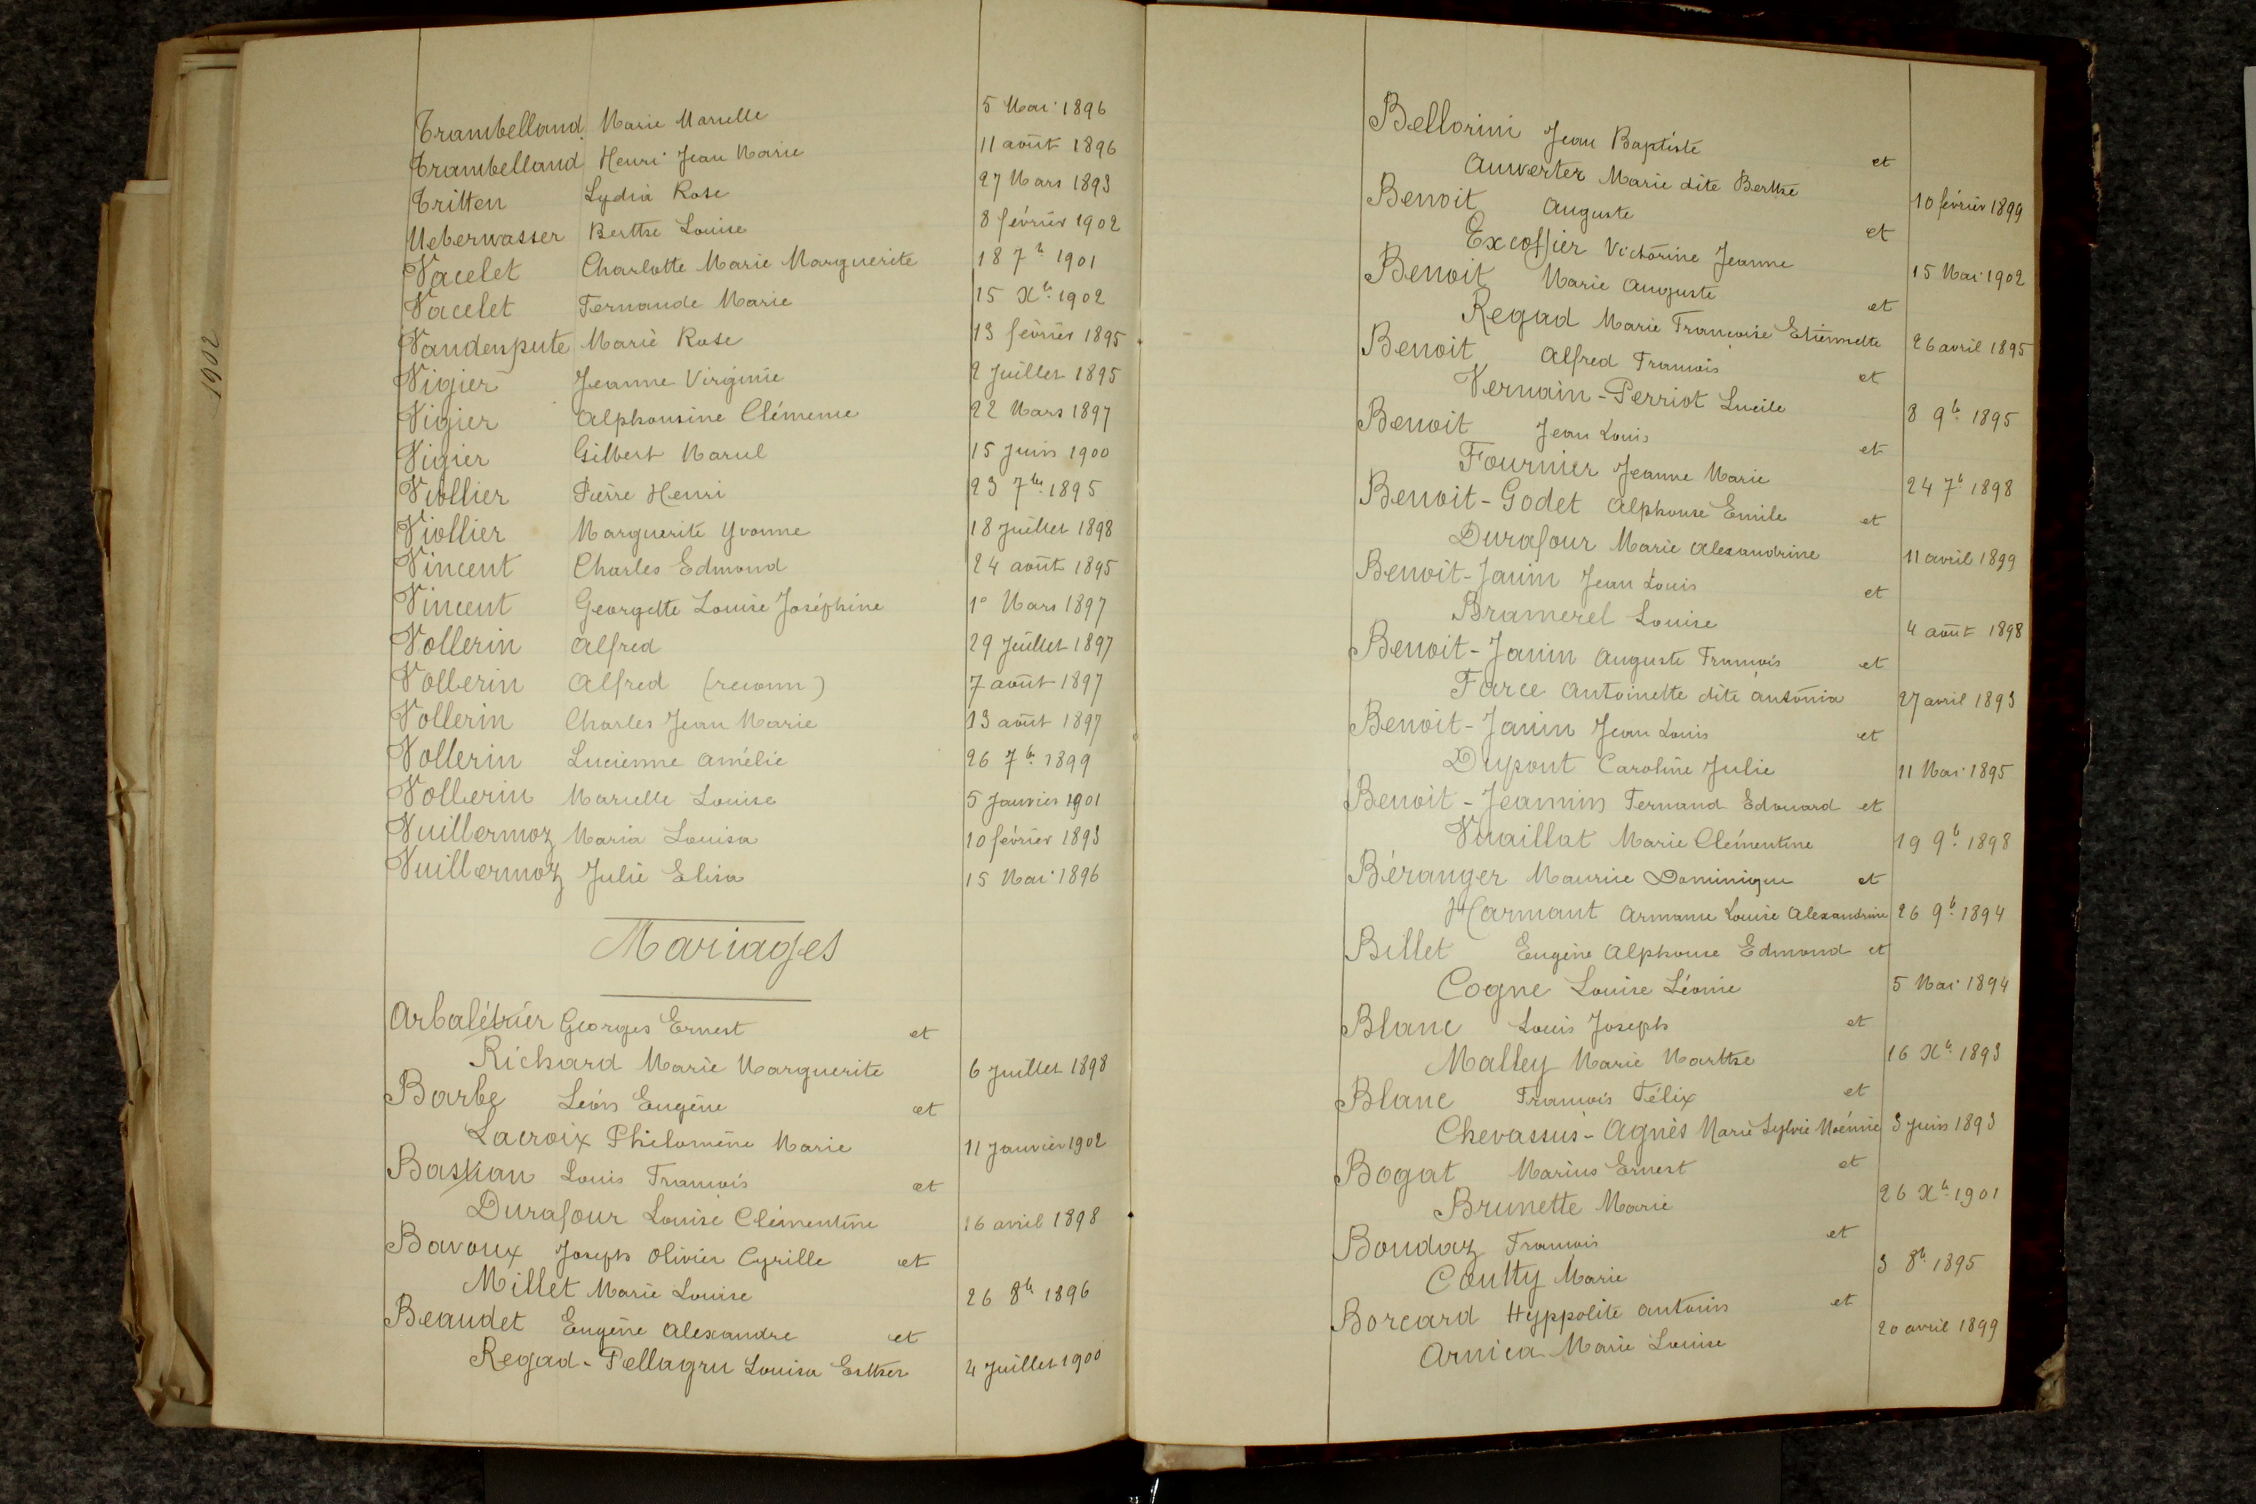 1902
Trambelland Marie Marcelle 5 Mai 1896
Trambelland Henri Jean Marie 11 août 1896
Tritten Lydia Rose 27 Mars 1893
Ueberwasser Berthe Louise 8 février 1902
Vacelet Charlotte Marie Marguerite 18 7b. 1901
Vacelet Fernande Marie 15 Xb. 1902
Vandenpute Marie Rose 13 février 1895
Vigier Jeanne Virginie 2 Juillet 1895
Vigier Alphonsine Clémence 22 Mars 1897
Vigier Gilbert Marcel 15 Juin 1900
Viollier Pierre Henri 23 7bre 1895
Viollier Marguerite Yvonne 18 Juillet 1898
Vincent Charles Edmond 24 août 1895
Vincent Georgette Louise Joséphine 1º Mars 1897
Vollerin Alfred 29 Juillet 1897
Vollerin Alfred (reconn) 7 août 1897
Vollerin Charles Jean Marie 13 août 1897
Vollerin Lucienne Amélie 26 7b. 1899
Vollerin Marcelle Louise 5 Janvier 1901
Vuillermoz Maria Louisa 10 février 1893
Vuillermoz Julie Elisa 15 Mai 1896
Mariages
Arbalétrier Georges Ernest et
Richard Marie Marguerite 6 Juillet 1898
Barbe Léon Eugène et
Lacroix Philomène Marie 11 Janvier 1902
Bastian Louis François et
Durafour Louise Clémentine 16 avril 1898
Bavoux Joseph Olivier Cyrille et
Millet Marie Louise 26 8b. 1896
Beaudet Eugène Alexandre et
Regad-Pellagru Louisa Esther 4 Juillet 1900
Bellorini Jean Baptiste et
Anwerter Marie dite Berthe 10 février 1899
Benoit Auguste et
Excoffier Victorine Jeanne 15 Mai 1902
Benoit Marie Auguste et
Regad Marie Françoise Etiennette 26 avril 1895
Benoit Alfred François et
Vernain-Perriot Lucile 8 9b. 1895
Benoit Jean Louis et
Fournier Jeanne Marie 24 7b 1898
Benoit-Godet Alphonse Emile et
Durafour Marie Alexandrine 11 avril 1899
Benoit-Janin Jean Louis et
Bramerel Louise 4 août 1898
Benoit-Janin Auguste François et
Farce Antoinette dite Antonia 27 avril 1893
Benoit-Janin Jean Louis et
Dupont Caroline Julie 11 Mai 1895
Benoit-Jeannin Fernand Edouard et
Vuaillat Marie Clémentine 19 9b. 1898
Béranger Maurice Dominique et
Harmant Armance Louise Alexandrine 26 9b. 1894
Billet Eugène Alphonse Edmond et
Cogne Louise Léonie 5 Mai 1894
Blanc Louis Joseph et
Malley Marie Marthe 16 Xb. 1893
Blanc François Félix et
Chevassus-Agnès Marie Sylvie Noémie 3 Juin 1893
Bogat Marius Ernest et
Brunette Marie 26 Xb. 1901
Boudaz François et
Coutty Marie 3 8b. 1895
Borcard Hyppolite Antonin et
Arnica Marie Louise 20 avril 1899